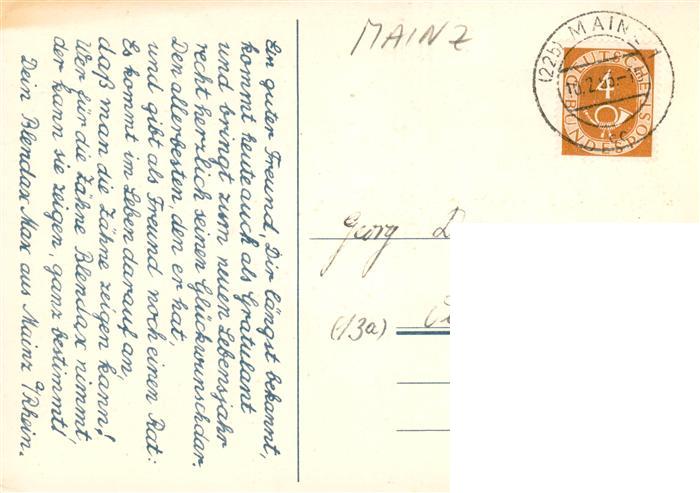 Ein guter Freund, Dir längst bekannt,
kommt heute auch als Gratulant
und bringt zum neuen Lebensjahr
recht herzlich seinen Glückwunsch dar.
Den allerbesten, den er hat,
und gibt als Freund noch einen Rat:
Es kommt im Leben darauf an,
daß man die Zähne zeigen kann!
Wer für die Zähne Blendax nimmt
der kann sie zeigen, ganz bestimmt!
Dein Blendax Max aus Mainz a/Rhein.
MAINZ
(22b) MAINZ
DEUTSCHE BUNDESPOST
4
Georg
(13a)